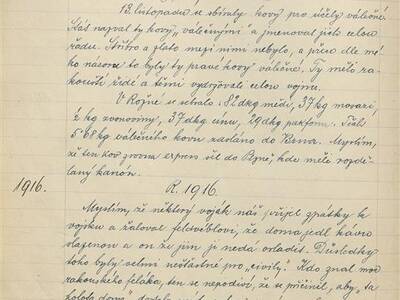 13. listopadu se sbíraly kovy pro účely válečné.
Kdš nazval ty kovy „válečnými" a jmenoval jich celou
řadu. Stříbro a zlato mezi nimi nebylo, a přece dle mé-
ho názoru to byly ty pravé kovy válečné. Ty měli ra-
kouští židé a těmi vydržovali celou vojnu.
V Rožné se sebralo: 81 dkg mědi, 37 kg mosazi,
2 kg zvonoviny, 37 dkg cínu, 29 dkg pakfonu.
5·68 kg válečného kovu zasláno do Brna. Myslím,
že ten kov zrovna expres šel do Plzně, kde měli rozdě-
laný kanon.
1916.
R. 1916.
Myslím, že některý voják náš přijel zpátky k
vojsku a žaloval feldvéblovi, že doma jedl kávu
slazenou a on že jim ji nedá osladit. Důsledky
toho byly velmi nešťastné pro „civily". Kdo znal
rakouského feláka, ten se nepodiví, že se přičinil, aby „ta
holota doma"